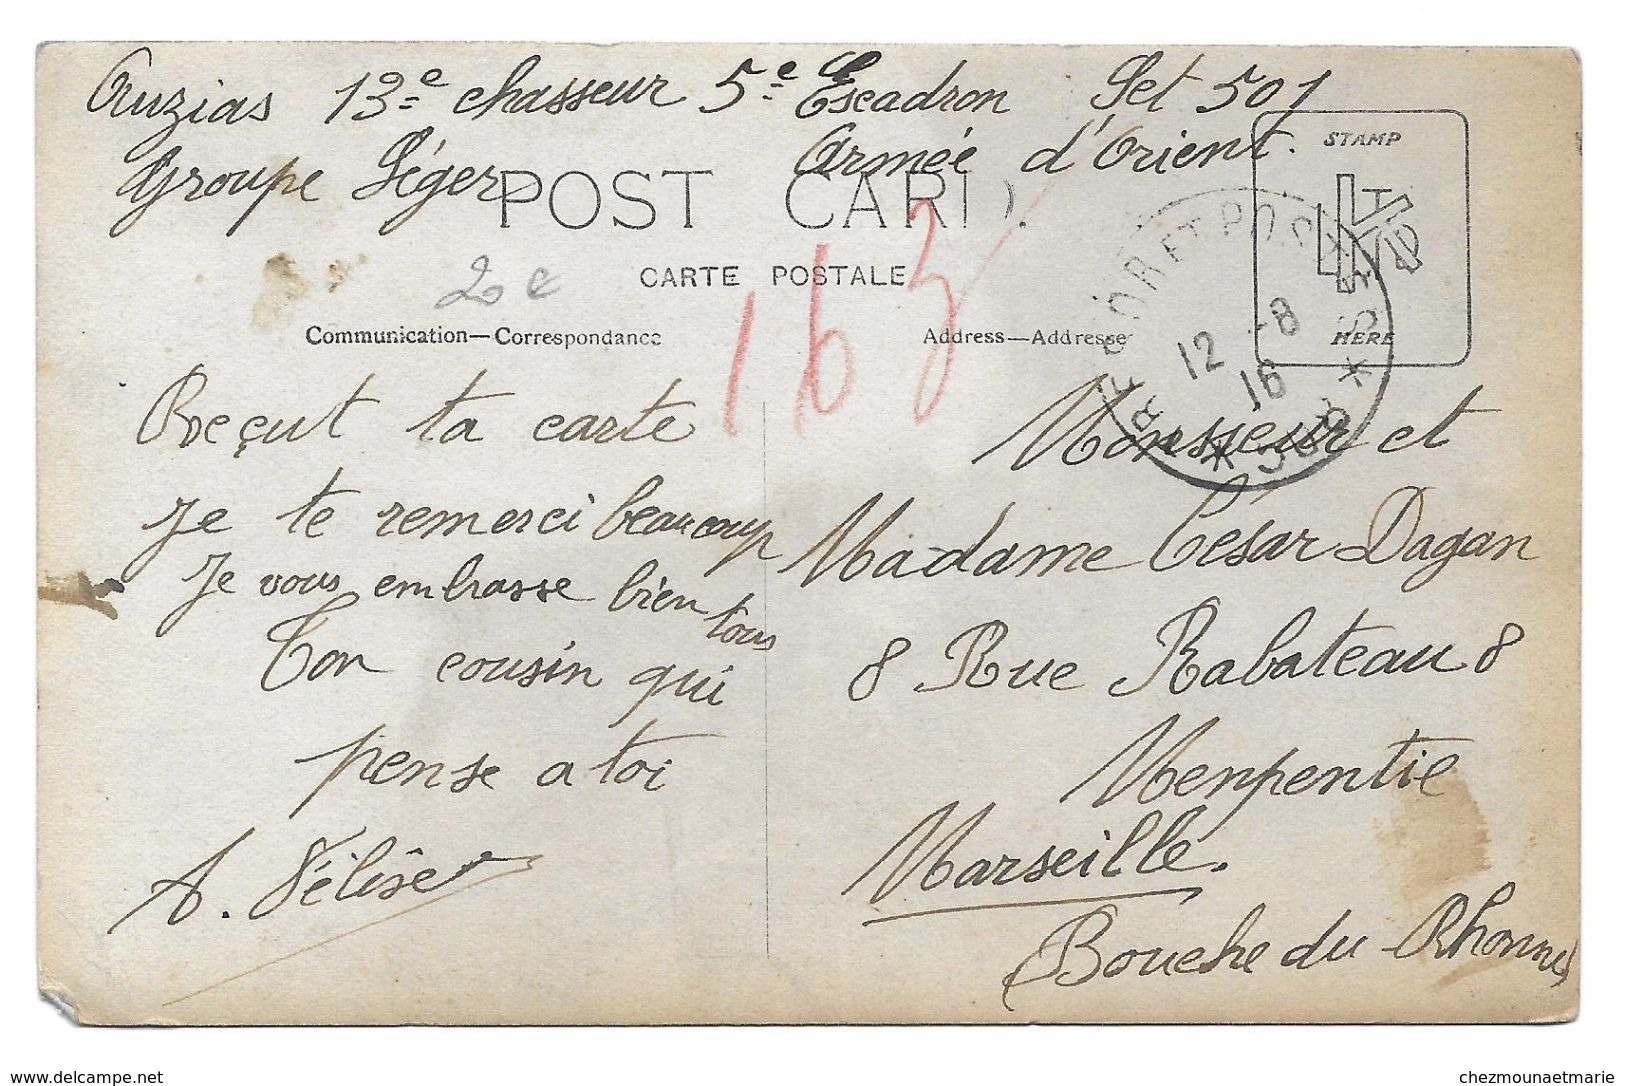 Auzias 13e chasseur 5e Escadron Set 501
Groupe Léger Armée d'Orient.
POST CARD.
STAMP
HERE
CARTE POSTALE
2 e
163
Communication—Correspondance
Address—Addresse
TRESOR ET POSTES
12 -8
16
* 508 *
Reççut ta carte
Je te remerci beaucoup
Je vous embrasse bien tous
Ton cousin qui
pense a toi
A. Félise
Monssieur et
Madame César Dagan
8 Rue Rabateau 8
Menpentie
Marseille.
(Bouche du Rhonne)
www.delcampe.net
chezmounaetmarie